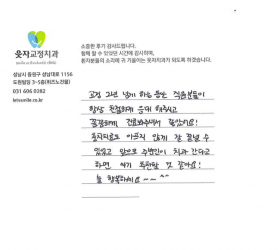 웃자교정치과
성남시 중원구 성남대로 1156
031 606 0282
letssmile.co.kr
소중한 후기 감사드립니다.
함께 할 수 있었던 시간에 감사하며,
환자분들의 소리에 귀 기울이는 웃자치과가 되도록 하겠습니다.
교정 2년 넘게 하는 동안 직원분들이
항상 친절하게 응대 해주시고
꼼꼼하게 진료봐주셔서 좋았어요!
충치치료도 아프지 않게 잘 끝낼 수
있었고 앞으로 주변인이 치과 간다고
하면 여기 추천할 것 같아요!
늘 행복하세요~~^^